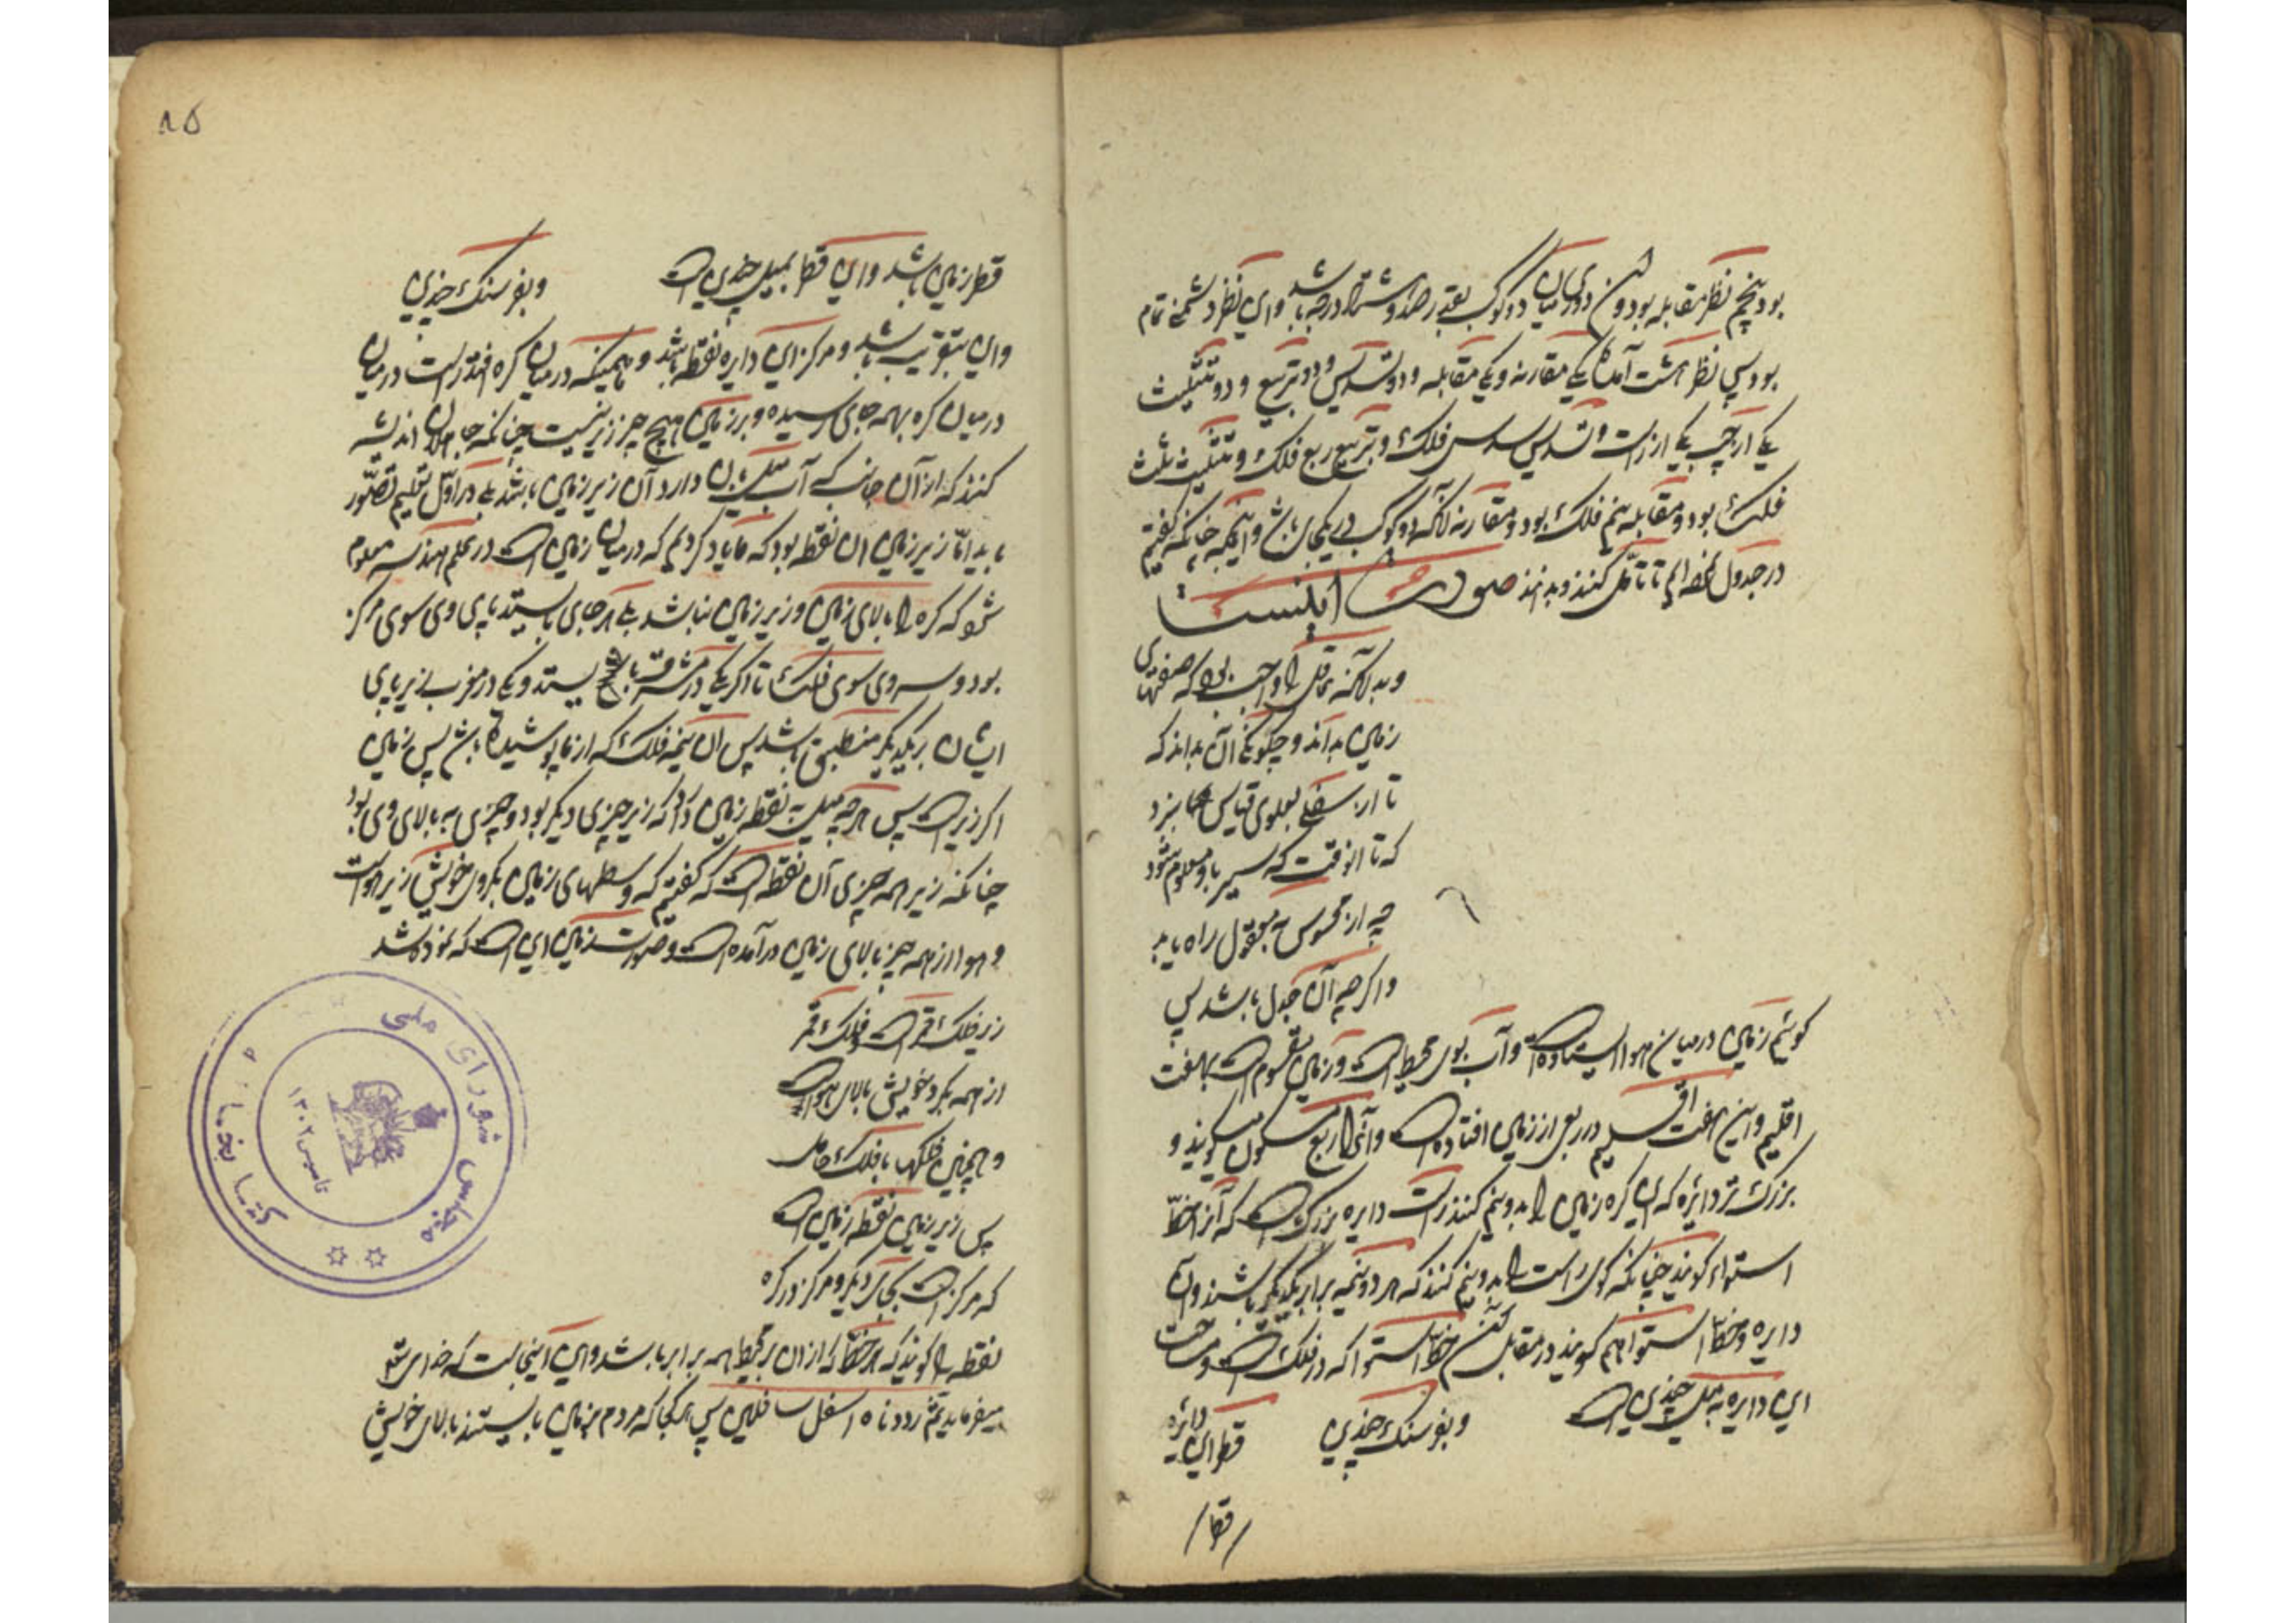 بود پنجم نظر مقابله بود و آن دوری میان دو کوکب بقدر صد و هشتاد درجه باشد و این نظر دشمنی تمام
بود پس نظر هشت آمد یکی مقارنه و یکی مقابله و دو تسدیس و دو تربیع و دو تثلیث
یکی از چپ یکی از راست و تسدیس سدس فلک و تربیع ربع فلک و تثلیث ثلث
فلک بود و مقابله نیم فلک بود و مقارنه آنکه دو کوکب در یکجای باشند و اینکه چنانکه گفتیم
در جدول نهاده‌ایم تا تأمّل کنند و بدانند صورت اینست
و بدانکه عاقل را واجب بود که صفتهای
زمین بداند و چگونگی آن بداند که
تا از سفلی بعلوی قیاس برد
که تا آنوقت که سر باو معلوم شود
چه از محسوس به معقول راه یابد
و اگر چه آن جدل باشد پس
گوئیم زمین در میان هوا ایستاده است و آب بوی محیط است و زمین مقسوم است بهفت
اقلیم و این هفت اقلیم در ربعی از زمین افتاده است و آنرا ربع مسکون میگویند و
بزرگ تر دایره که این کره زمین را بدو نیم کند راست دایره بزرگ است که آنرا خطّ
استواء گویند چنانکه گوی راست را بدو نیم کنند که هر دو نیمه برابر یکدیگر باشند و آن
دایره و خطّ استوا هم گویند در مقابل خطّ استوا که در فلک است و مساحت
این دایره به میل چندین است و بفرسنگ چندین قطر این دایره
قطر
۸۵
قطر زمین باشد و این قطر بمیل چندین است و بفرسنگ چندین
و این بتقریب باشد و مرکز این دایره نقطه باشد و همینکه در میان کره افتد راست در میان
در میان کره بهمه جای رسیده و بر زمین هیچ چیز زیر نیست چنانکه جاهلان اندیشه
کنند که از آن جانب که آب میلان دارد آن زیر زمین باشد بلی در اوّل تعلیم تصوّر
باید امّا زیر زمین آن نقطه بود که ما یاد کردیم که در میان زمین است در علم هندسه معلوم
شود که کره را بالای زمین و زیر زمین نباشد بلی هر جای بایستد پای وی سوی مرکز
بود و سر وی سوی فلک تا اگر یکی در مشرق بایستد و یکی در مغرب زیر پای
ایشان بر یکدیگر منطبق باشد پس آن نیمه فلک که از ما پوشیده باشد پس زمین
اگر زیر است پس هر چه میل به نقطه زمین دارد که زیر چیزی دیگر بود و چیزی به بالای وی بود
چنانکه زیر همه چیزی آن نقطه است که گفتیم که وسطهای زمین بگرد خویش زیر هواست
و هوا از همه چیز بالای زمین در آمده است و صورت زمین این است که نموده شد
زیر فلک قمر است و فلک قمر
از همه بگرد خویش بالای هواست
و همچنین فلکها با فلک حامل
پس زیر زمین نقطه زمین است
که مرکز است بجای دیگر و مرکز در کره
نقطه را گویند که هر خطّ که از آن بر محیط همه برابر باشد و این اینجاست که خدای تعالی
میفرماید ثمّ رددناه اسفل سافلین پس هر کجا که مردم بر زمین بایستند بالای خویش
کتابخانه مجلس شورای ملی
تاسیس ۱۳۰۲